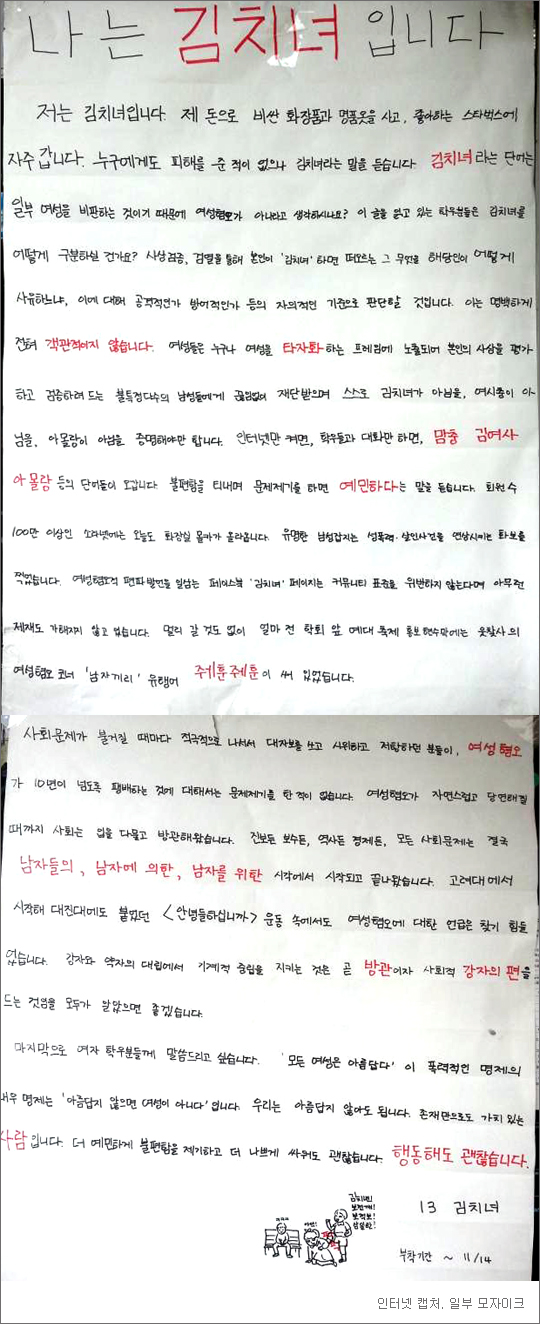 나는 김치녀 입니다
저는 김치녀입니다. 제 돈으로 비싼 화장품과 명품옷을 사고, 좋아하는 스타벅스에
자주 갑니다. 누구에게도 피해를 준 적이 없으나 김치녀라는 말을 듣습니다. 김치녀라는 단어는
일부 여성을 비판하는 것이기 때문에 여성혐오가 아니라고 생각하시나요? 이 글을 읽고 있는 학우분들은 김치녀를
어떻게 구분하실 건가요? 사상검증, 검열을 통해 본인이 '김치녀' 하면 떠오르는 그 무엇을 해당인이 어떻게
사유하느냐, 이에 대해 공격적인가 방어적인가 등의 자의적인 기준으로 판단할 것입니다. 이는 명백하게
전혀 객관적이지 않습니다. 여성들은 누구나 여성을 타자화하는 프레임에 노출되어 본인의 사상을 평가
하고 검증하려 드는 불특정다수의 남성들에게 끊임없이 재단받으며 스스로 김치녀가 아님을, 여시충이 아
님을, 아몰랑이 아님을 증명해야만 합니다. 인터넷만 켜면, 학우들과 대화만 하면, 맘충 김여사
아몰랑 등의 단어들이 오갑니다. 불편함을 티내며 문제제기를 하면 예민하다는 말을 듣습니다. 회원수
100만 이상인 소라넷에는 오늘도 화장실 몰카가 올라옵니다. 유명한 남성잡지는 성폭력·살인사건을 연상시키는 화보를
찍었습니다. 여성혐오적 편파발언을 일삼는 페이스북 '김치녀' 페이지는 커뮤니티 표준을 위반하지 않는다며 아무런
제재도 가해지지 않고 있습니다. 멀리 갈 것도 없이 얼마 전 학회 앞 예대 축제 홍보 현수막에는 웃찾사의
여성혐오 코너 '남자끼리' 유행어 쥬케훈쥬케훈이 써 있었습니다.
사회문제가 불거질 때마다 적극적으로 나서서 대자보를 쓰고 시위하고 저항하던 분들이, 여성혐오
가 10년이 넘도록 팽배하는 것에 대해서는 문제제기를 한 적이 없습니다. 여성혐오가 자연스럽고 당연해질
때까지 사회는 입을 다물고 방관해왔습니다. 진보든 보수든, 역사든 경제든, 모든 사회문제는 결국
남자들의, 남자에 의한, 남자를 위한 시작에서 시작되고 끝나왔습니다. 고려대에서
시작해 대진대에도 붙었던 <안녕들하십니까> 운동 속에서도 여성혐오에 대한 언급은 찾기 힘들
었습니다. 강자와 약자의 대립에서 기계적 중립을 지키는 것은 곧 방관이자 사회적 강자의 편을
드는 것임을 모두가 알았으면 좋겠습니다.
마지막으로 여자 학우분들께 말씀드리고 싶습니다. '모든 여성은 아름답다' 이 폭력적인 명제의
대우 명제는 '아름답지 않으면 여성이 아니다'입니다. 우리는 아름답지 않아도 됩니다. 존재만으로도 가치 있는
사람입니다. 더 예민하게 불편함을 제기하고 더 나쁘게 싸워도 괜찮습니다. 행동해도 괜찮습니다.
김치녀!
13 김치녀
부착기간 ~ 11/14
인터넷 캡처, 일부 모자이크